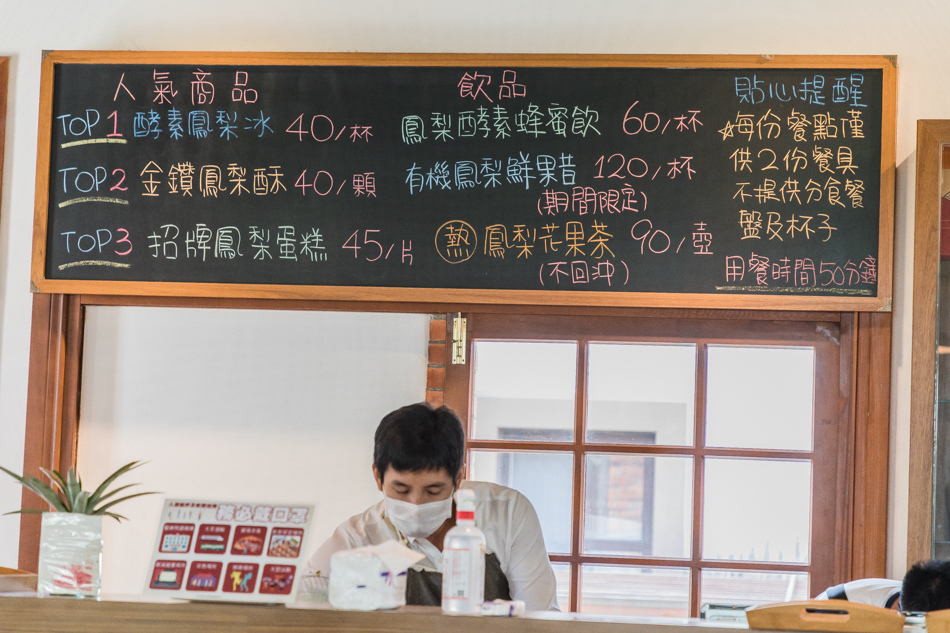 人氣商品
TOP 1 酵素鳳梨冰 40/杯
TOP2 金鑽鳳梨酥 40/顆
TOP3 招牌鳳梨蛋糕 45/片
飲品
鳳梨酵素蜂蜜飲 60/杯
有機鳳梨鮮果昔 120/杯
(期間限定)
熱 鳳梨花果茶 90/壺
(不回沖)
貼心提醒
☆每份餐點僅
供2份餐具
不提供分食餐
盤及杯子
用餐時間50分鐘
務必戴口罩